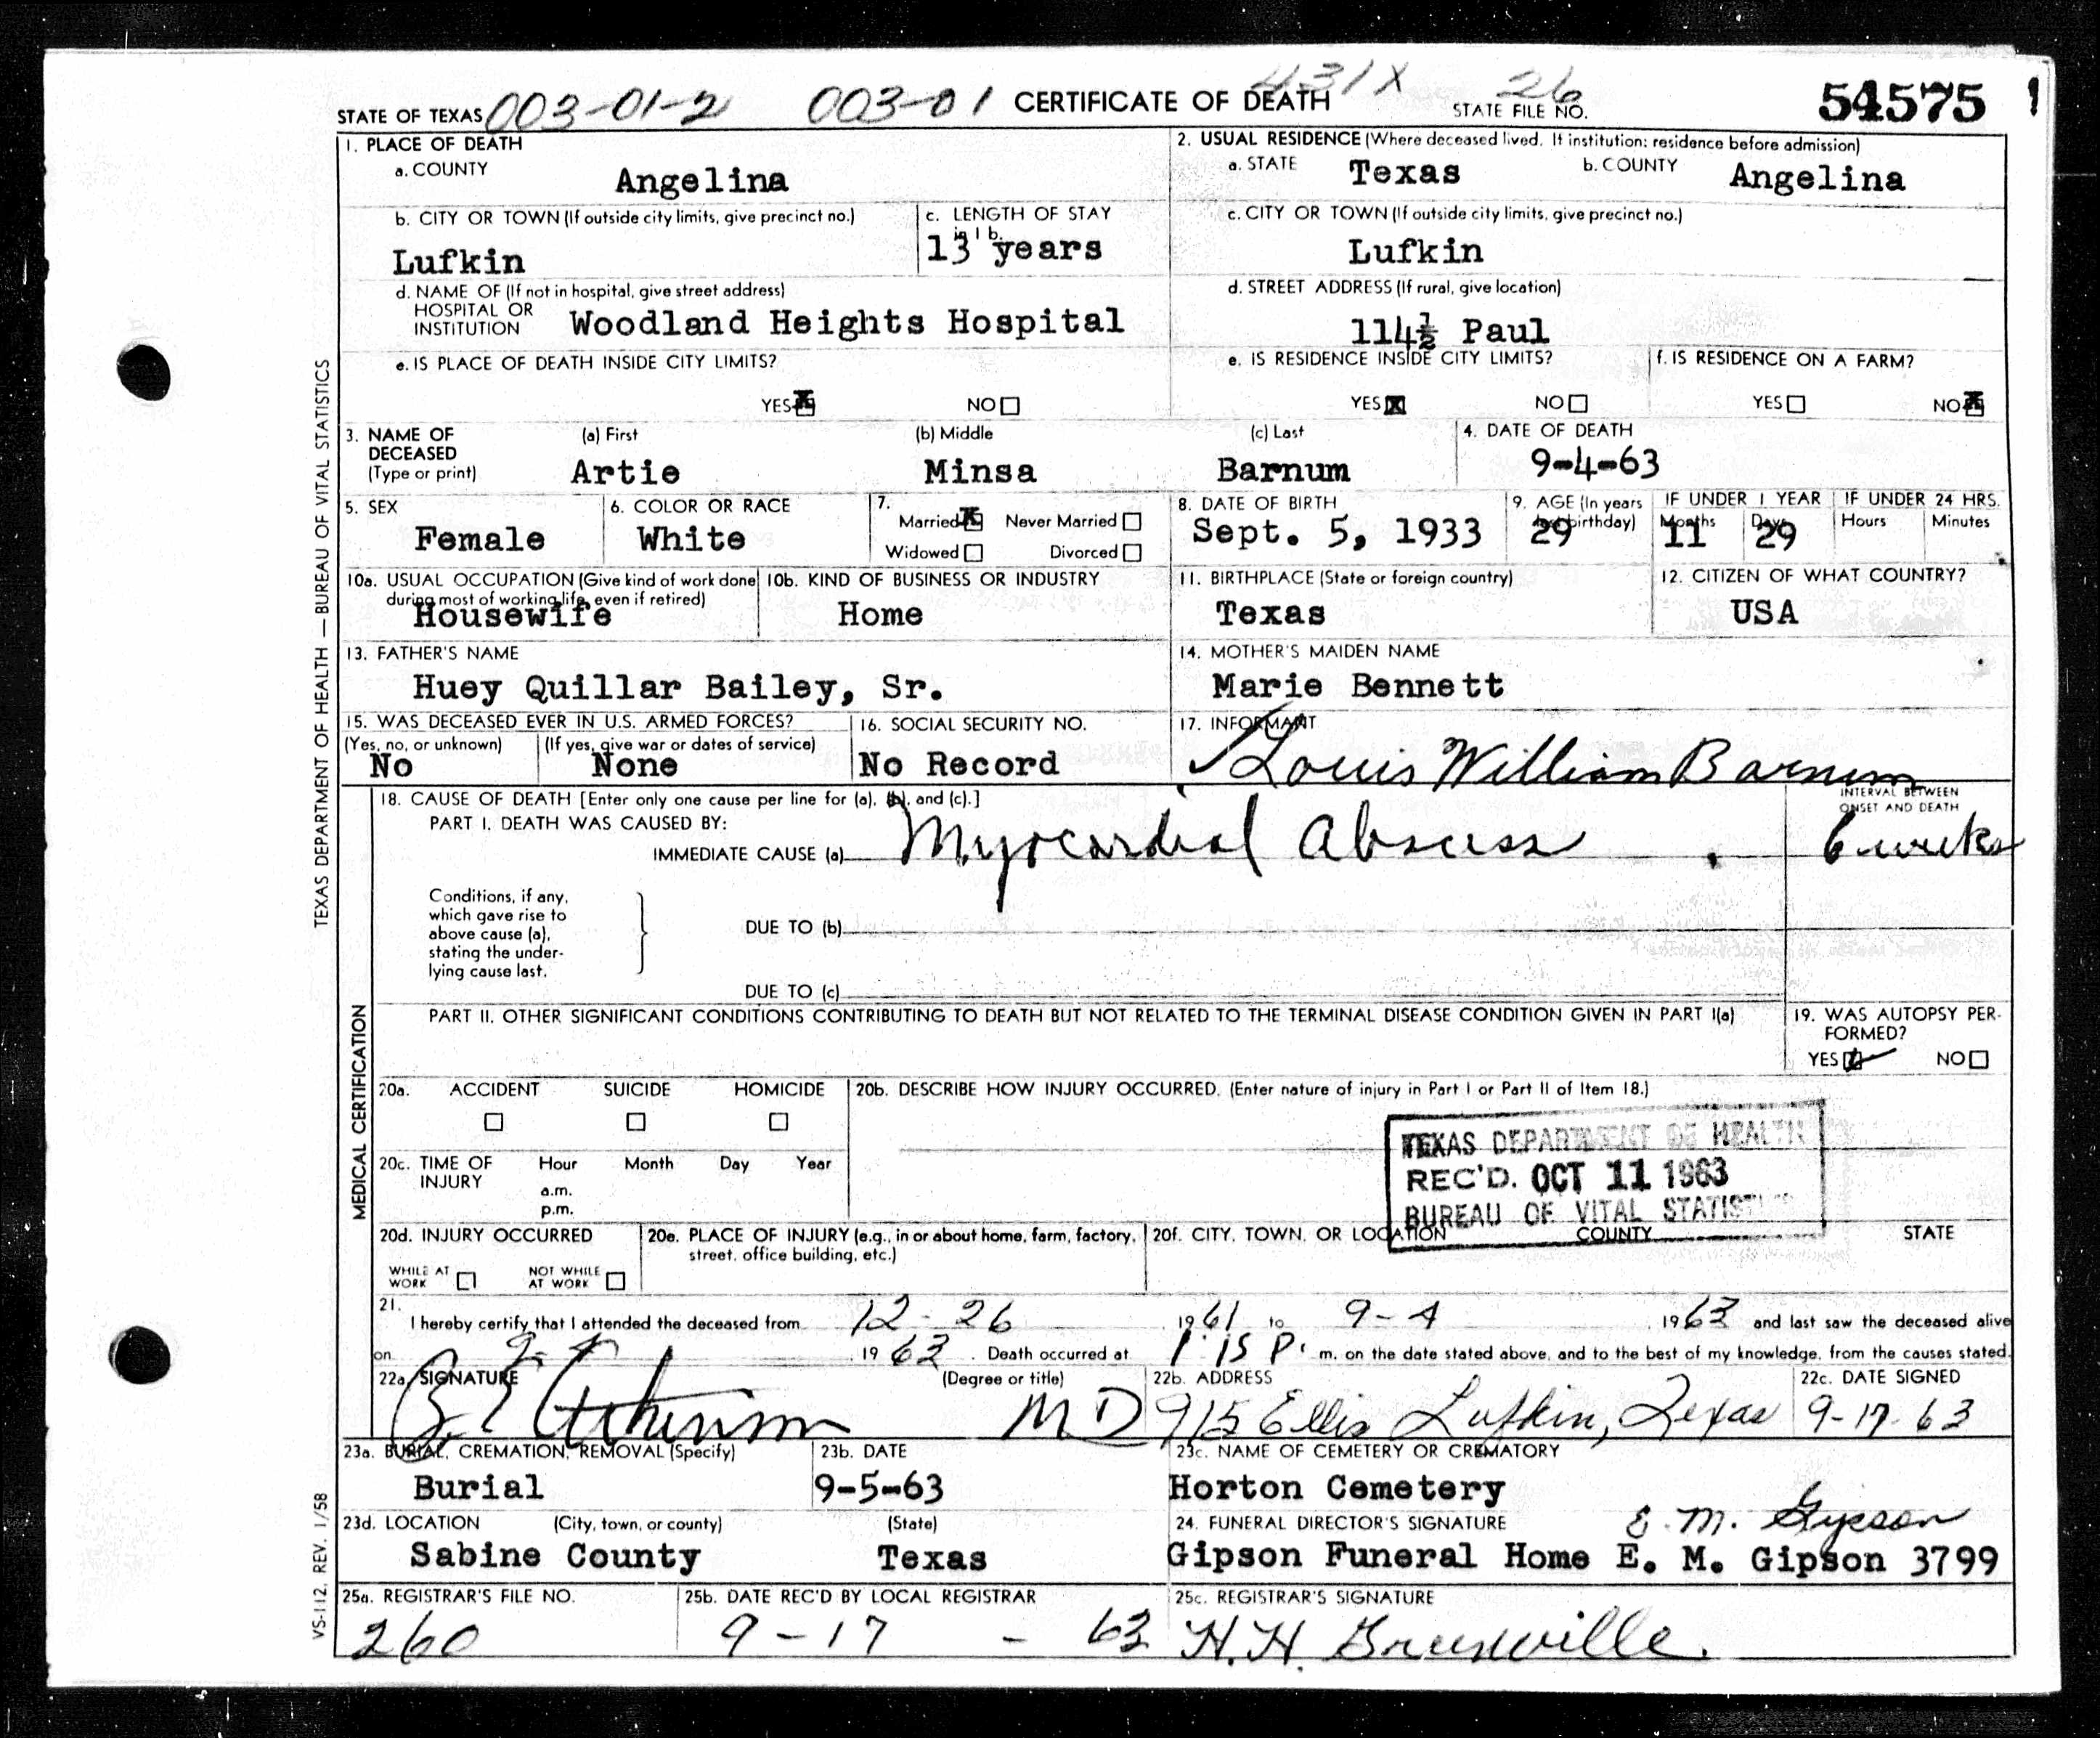 STATE OF TEXAS 003-01-2 003-01 CERTIFICATE OF DEATH 431X STATE FILE NO. 26 54575 1
TEXAS DEPARTMENT OF HEALTH — BUREAU OF VITAL STATISTICS
1. PLACE OF DEATH
a. COUNTY Angelina
2. USUAL RESIDENCE (Where deceased lived. If institution: residence before admission)
a. STATE Texas b. COUNTY Angelina
b. CITY OR TOWN (If outside city limits, give precinct no.)
Lufkin
c. LENGTH OF STAY in 1 b.
13 years
c. CITY OR TOWN (If outside city limits, give precinct no.)
Lufkin
d. NAME OF (If not in hospital, give street address)
HOSPITAL OR
INSTITUTION Woodland Heights Hospital
d. STREET ADDRESS (If rural, give location)
114½ Paul
e. IS PLACE OF DEATH INSIDE CITY LIMITS?
YES X NO
e. IS RESIDENCE INSIDE CITY LIMITS?
YES X NO
f. IS RESIDENCE ON A FARM?
YES NO X
3. NAME OF DECEASED (Type or print)
(a) First (b) Middle (c) Last
Artie Minsa Barnum
4. DATE OF DEATH
9-4-63
5. SEX
Female
6. COLOR OR RACE
White
7.
Married X Never Married
Widowed Divorced
8. DATE OF BIRTH
Sept. 5, 1933
9. AGE (In years last birthday)
29
IF UNDER 1 YEAR
Months Days
11 29
IF UNDER 24 HRS.
Hours Minutes
10a. USUAL OCCUPATION (Give kind of work done during most of working life, even if retired)
Housewife
10b. KIND OF BUSINESS OR INDUSTRY
Home
11. BIRTHPLACE (State or foreign country)
Texas
12. CITIZEN OF WHAT COUNTRY?
USA
13. FATHER'S NAME
Huey Quillar Bailey, Sr.
14. MOTHER'S MAIDEN NAME
Marie Bennett
15. WAS DECEASED EVER IN U.S. ARMED FORCES?
(Yes, no, or unknown) (If yes, give war or dates of service)
No None
16. SOCIAL SECURITY NO.
No Record
17. INFORMANT
Louis William Barnum
MEDICAL CERTIFICATION
18. CAUSE OF DEATH [Enter only one cause per line for (a), (b), and (c).]
INTERVAL BETWEEN
ONSET AND DEATH
PART I. DEATH WAS CAUSED BY:
IMMEDIATE CAUSE (a) Myocardial Abscess 6 weeks
Conditions, if any,
which gave rise to
above cause (a),
stating the under-
lying cause last.
DUE TO (b)
DUE TO (c)
PART II. OTHER SIGNIFICANT CONDITIONS CONTRIBUTING TO DEATH BUT NOT RELATED TO THE TERMINAL DISEASE CONDITION GIVEN IN PART I(a)
19. WAS AUTOPSY PER-
FORMED?
YES ✓ NO
20a. ACCIDENT SUICIDE HOMICIDE
20b. DESCRIBE HOW INJURY OCCURRED. (Enter nature of injury in Part I or Part II of Item 18.)
TEXAS DEPARTMENT OF HEALTH
REC'D. OCT 11 1963
BUREAU OF VITAL STATISTICS
20c. TIME OF INJURY Hour Month Day Year
a.m.
p.m.
20d. INJURY OCCURRED
WHILE AT WORK NOT WHILE AT WORK
20e. PLACE OF INJURY (e.g., in or about home, farm, factory, street, office building, etc.)
20f. CITY, TOWN, OR LOCATION COUNTY STATE
21.
I hereby certify that I attended the deceased from 12-26 1961 to 9-4 1963 and last saw the deceased alive
on 9-4 1963. Death occurred at 1:15 P. m. on the date stated above, and to the best of my knowledge, from the causes stated.
22a. SIGNATURE (Degree or title)
M D
22b. ADDRESS
915 Ellis Lufkin, Texas
22c. DATE SIGNED
9-17-63
23a. BURIAL, CREMATION, REMOVAL (Specify)
Burial
23b. DATE
9-5-63
23c. NAME OF CEMETERY OR CREMATORY
Horton Cemetery
23d. LOCATION (City, town, or county) (State)
Sabine County Texas
24. FUNERAL DIRECTOR'S SIGNATURE E. M. Gipson
Gipson Funeral Home E. M. Gipson 3799
25a. REGISTRAR'S FILE NO.
260
25b. DATE REC'D BY LOCAL REGISTRAR
9-17-63
25c. REGISTRAR'S SIGNATURE
H. H.
VS-112, REV. 1/58